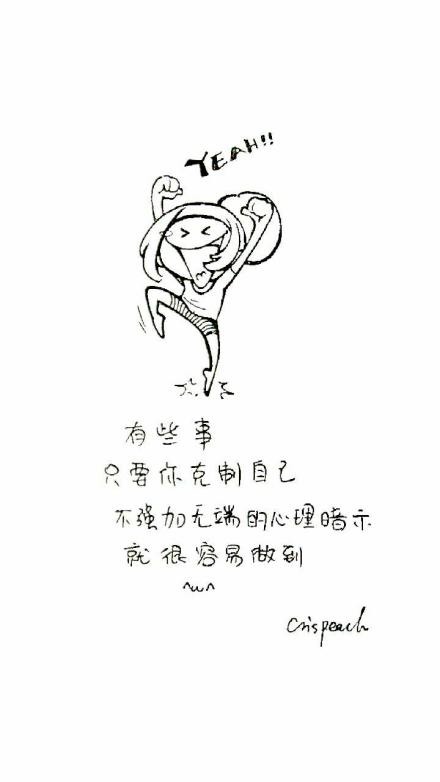 YEAH!!
有些事
只要你克制自己
不强加无端的心理暗示
就很容易做到
^w^
Crispeach